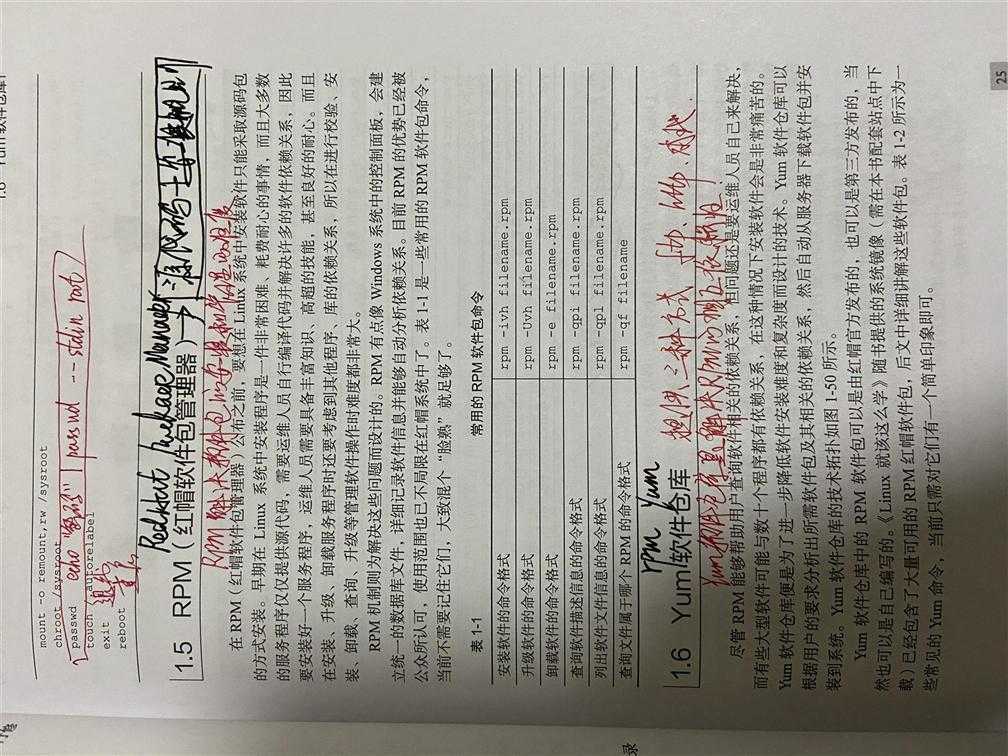 mount -o remount,rw /sysroot
chroot /sysroot
echo "密码" | passwd --stdin root
passwd
touch /.autorelabel
exit 退出
reboot 重启
Redhat Package Manager
1.5 RPM（红帽软件包管理器）
在 RPM（红帽软件包管理器）公布之前，要想在 Linux 系统中安装软件只能采取源码包
的方式安装。早期在 Linux 系统中安装程序是一件非常困难、耗费耐心的事情，而且大多数
的服务程序仅仅提供源代码，需要运维人员自行编译代码并解决许多的软件依赖关系，因此
要安装好一个服务程序，运维人员需要具备丰富知识、高超的技能，甚至良好的耐心。而且
在安装、升级、卸载服务程序时还要考虑到其他程序、库的依赖关系，所以在进行校验、安
装、卸载、查询、升级等管理软件操作时难度都非常大。
RPM 机制则为解决这些问题而设计的。RPM 有点像 Windows 系统中的控制面板，会建
立统一的数据库文件，详细记录软件信息并能够自动分析依赖关系。目前 RPM 的优势已经被
公众所认可，使用范围也已不局限在红帽系统中了。表 1-1 是一些常用的 RPM 软件包命令，
当前不需要记住它们，大致混个“脸熟”就足够了。
表 1-1 常用的 RPM 软件包命令
安装软件的命令格式 rpm -ivh filename.rpm
升级软件的命令格式 rpm -Uvh filename.rpm
卸载软件的命令格式 rpm -e filename.rpm
查询软件描述信息的命令格式 rpm -qpi filename.rpm
列出软件文件信息的命令格式 rpm -qpl filename.rpm
查询文件属于哪个 RPM 的命令格式 rpm -qf filename
rpm Yum 提供三种方式 ftp. http. 本式
1.6 Yum 软件仓库
尽管 RPM 能够帮助用户查询软件相关的依赖关系，但问题还是要运维人员自己来解决，
而有些大型软件可能与数十个程序都有依赖关系，在这种情况下安装软件会是非常痛苦的。
Yum 软件仓库便是为了进一步降低软件安装难度和复杂度而设计的技术。Yum 软件仓库可以
根据用户的要求分析出所需软件包及其相关的依赖关系，然后自动从服务器下载软件包并安
装到系统。Yum 软件仓库的技术拓扑如图 1-50 所示。
Yum 软件仓库中的 RPM 软件包可以是由红帽官方发布的，也可以是第三方发布的，当
然也可以是自己编写的。《Linux 就该这么学》随书提供的系统镜像（需在本书配套站点中下
载）已经包含了大量可用的 RPM 红帽软件包，后文中详细讲解这些软件包。表 1-2 所示为一
些常见的 Yum 命令，当前只需对它们有一个简单印象即可。
25
录